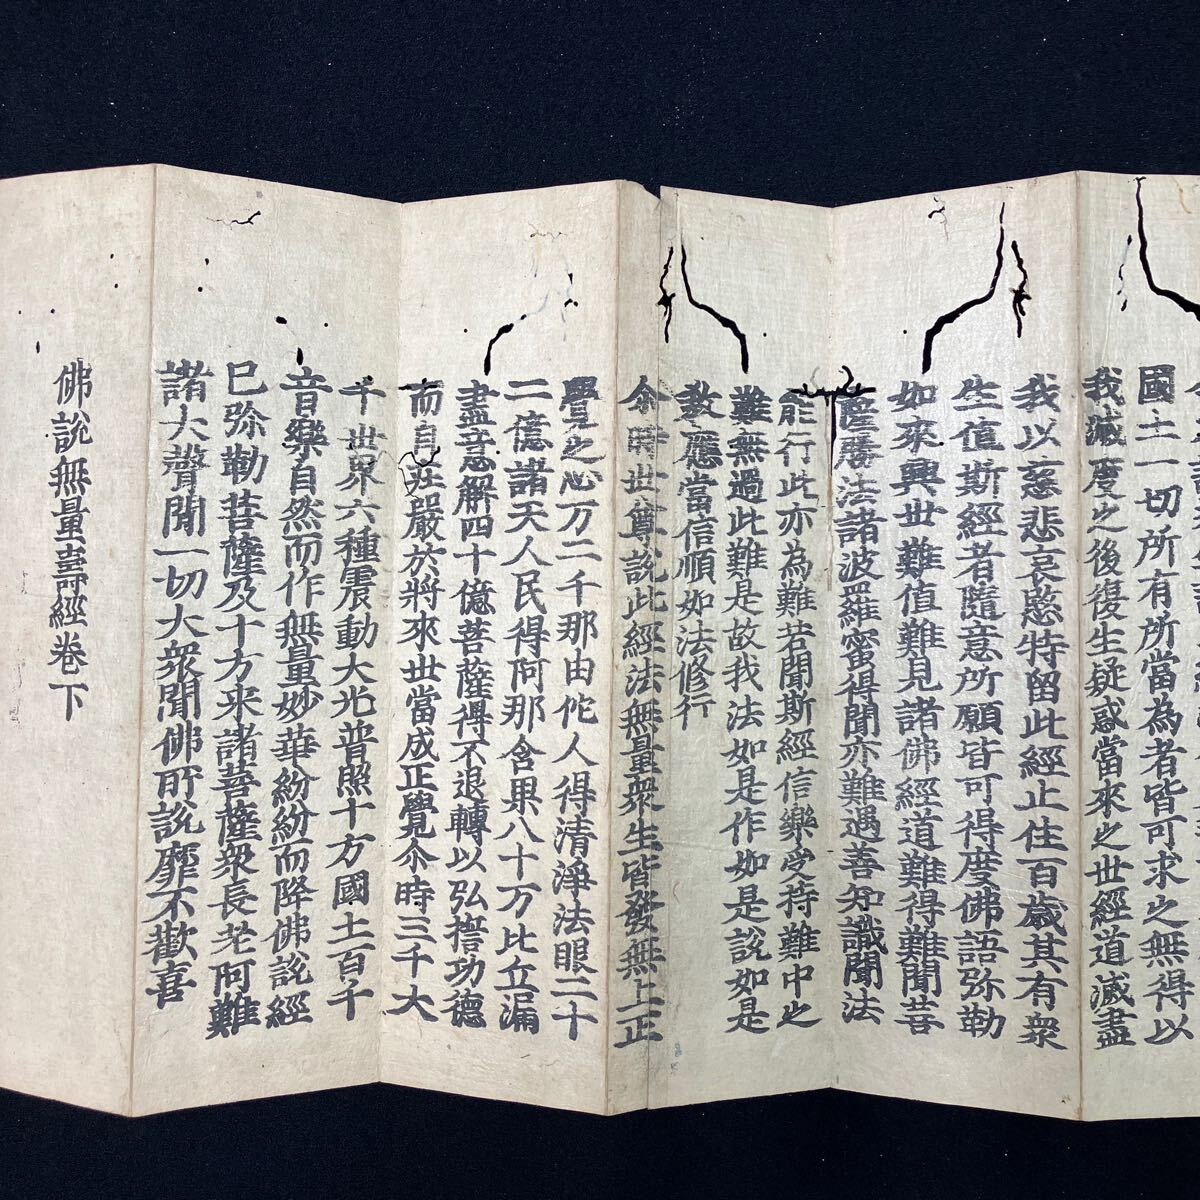 國土一切所有所當為者皆可求之無得以
我滅度之後復生疑惑當來之世經道滅盡
我以慈悲哀愍特留此經止住百歲其有衆
生值斯經者隨意所願皆可得度佛語弥勒
如來興世難值難見諸佛經道難得難聞菩
薩勝法諸波羅蜜得聞亦難遇善知識聞法
能行此亦為難若聞斯經信樂受持難中之
難無過此難是故我法如是作如是說如是
教應當信順如法修行
尒時世尊說此經法無量衆生皆發無上正
覺之心万二千那由佗人得清淨法眼二十
二億諸天人民得阿那含果八十万比丘漏
盡意解四十億菩薩得不退轉以弘誓功德
而自莊嚴於將來世當成正覺尒時三千大
千世界六種震動大光普照十方國土百千
音樂自然而作無量妙華紛紛而降佛說經
已弥勒菩薩及十方来諸菩薩衆長老阿難
諸大聲聞一切大衆聞佛所說靡不歡喜
佛說無量壽經卷下